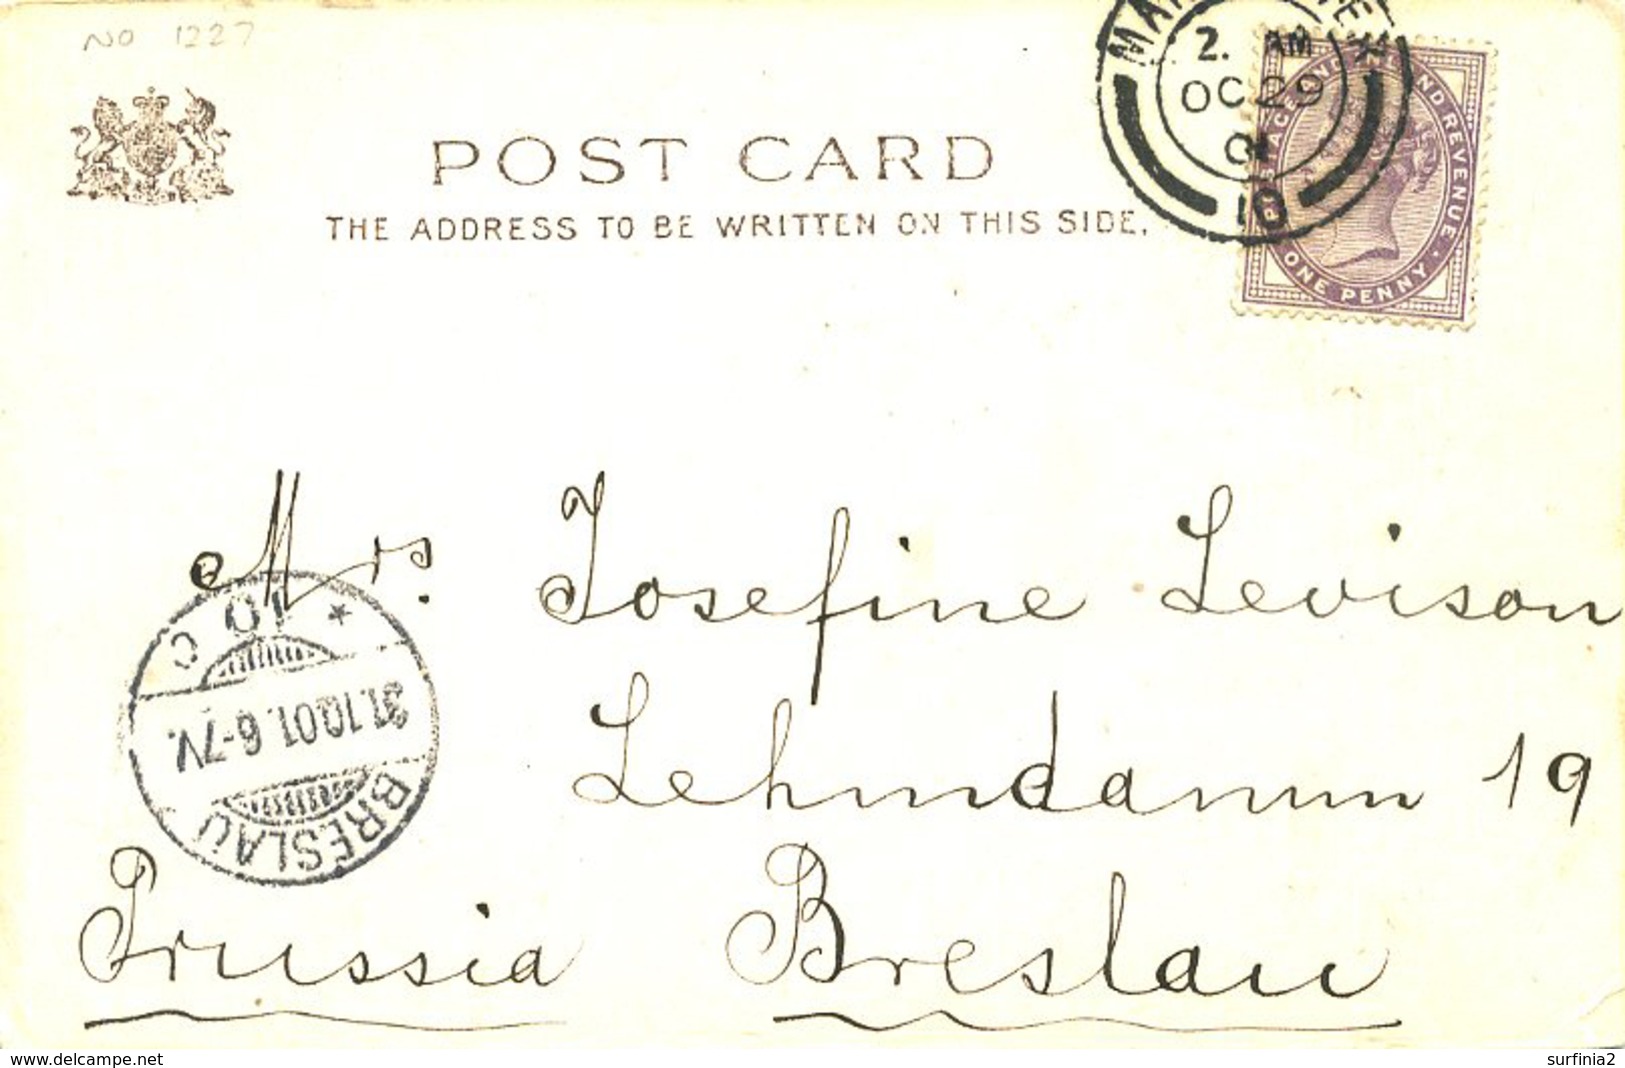 NO 1227
POST CARD
THE ADDRESS TO BE WRITTEN ON THIS SIDE.
2. AM
OC 29
01
10
POSTAGE AND INLAND REVENUE
ONE PENNY
Mrs. Josefine Levison
Lehmdamm 19
10 C
31.10.01. 6-7V.
BRESLAU
Prussia Breslau
www.delcampe.net
surfinia2